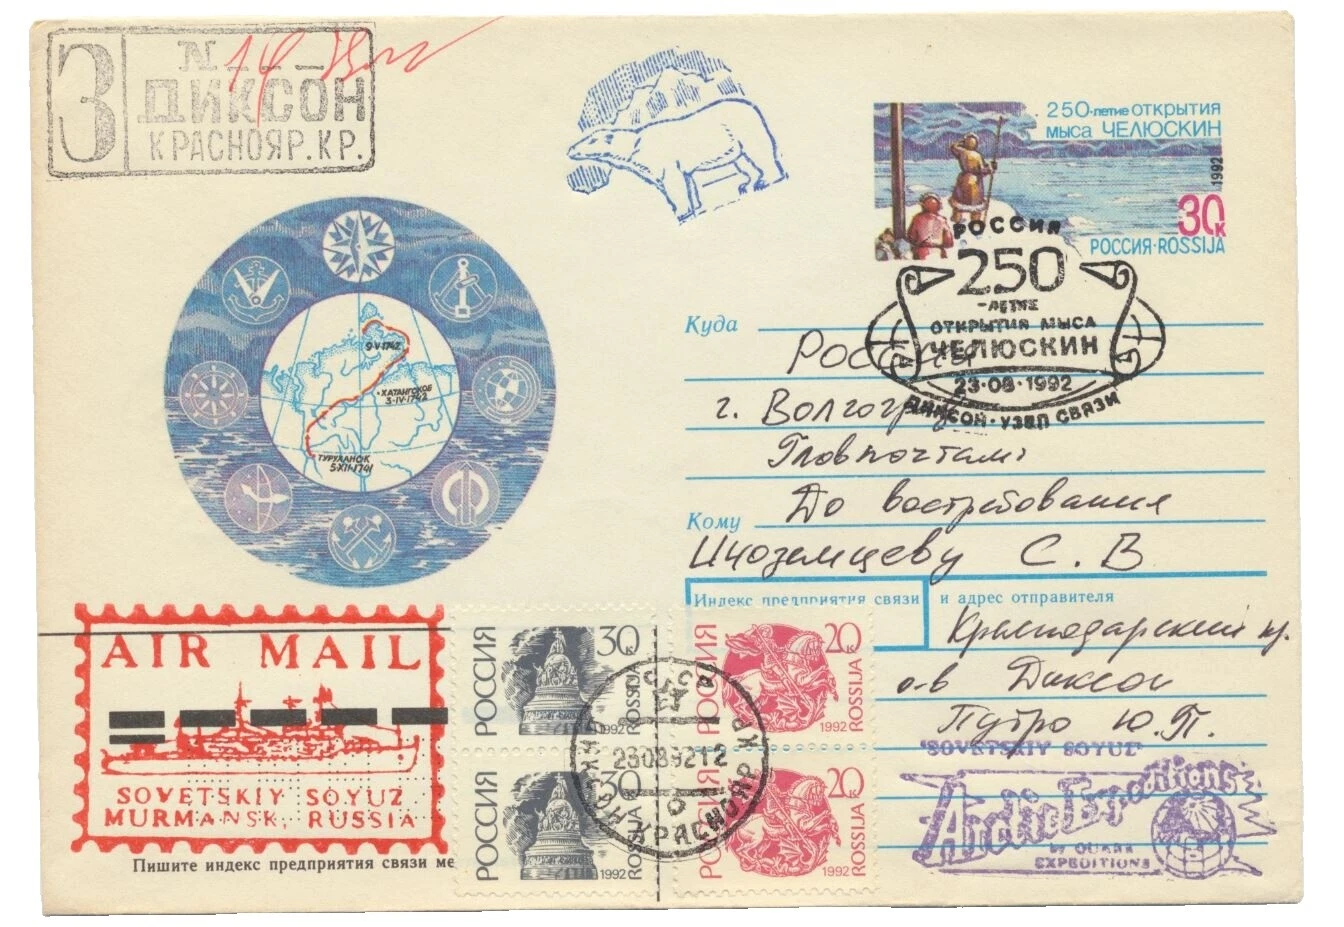 З
N
ДИКСОН
КРАСНОЯР.КР.
250-летие ОТКРЫТИЯ
МЫСА ЧЕЛЮСКИН
1992
30к
РОССИЯ·ROSSIJA
РОССИЯ
250
-ЛЕТИЕ
ОТКРЫТИЯ МЫСА
ЧЕЛЮСКИН
23·08·1992
ДИКСОН·УЗЕЛ СВЯЗИ
9-V-1742
ХАТАНГСКОЕ
3-IV-1742
ТУРУХАНСК
5-XII-1741
Куда
Россия
г. Волгоград
Главпочтамт
До востребования
Кому
Иноземцеву С. В
Индекс предприятия связи и адрес отправителя
Краснодарский кр.
о-в Диксон
Путро Ю.П.
AIR MAIL
SOVETSKIY SOYUZ
MURMANSK, RUSSIA
РОССИЯ 30к ROSSIJA 1992
РОССИЯ 20к ROSSIJA 1992
РОССИЯ 30к ROSSIJA 1992
РОССИЯ 20к ROSSIJA 1992
КРАСНОЯР КР
"SOVETSKIY SOYUZ"
Arctic Expeditions
BY QUARK
EXPEDITIONS
Пишите индекс предприятия связи ме